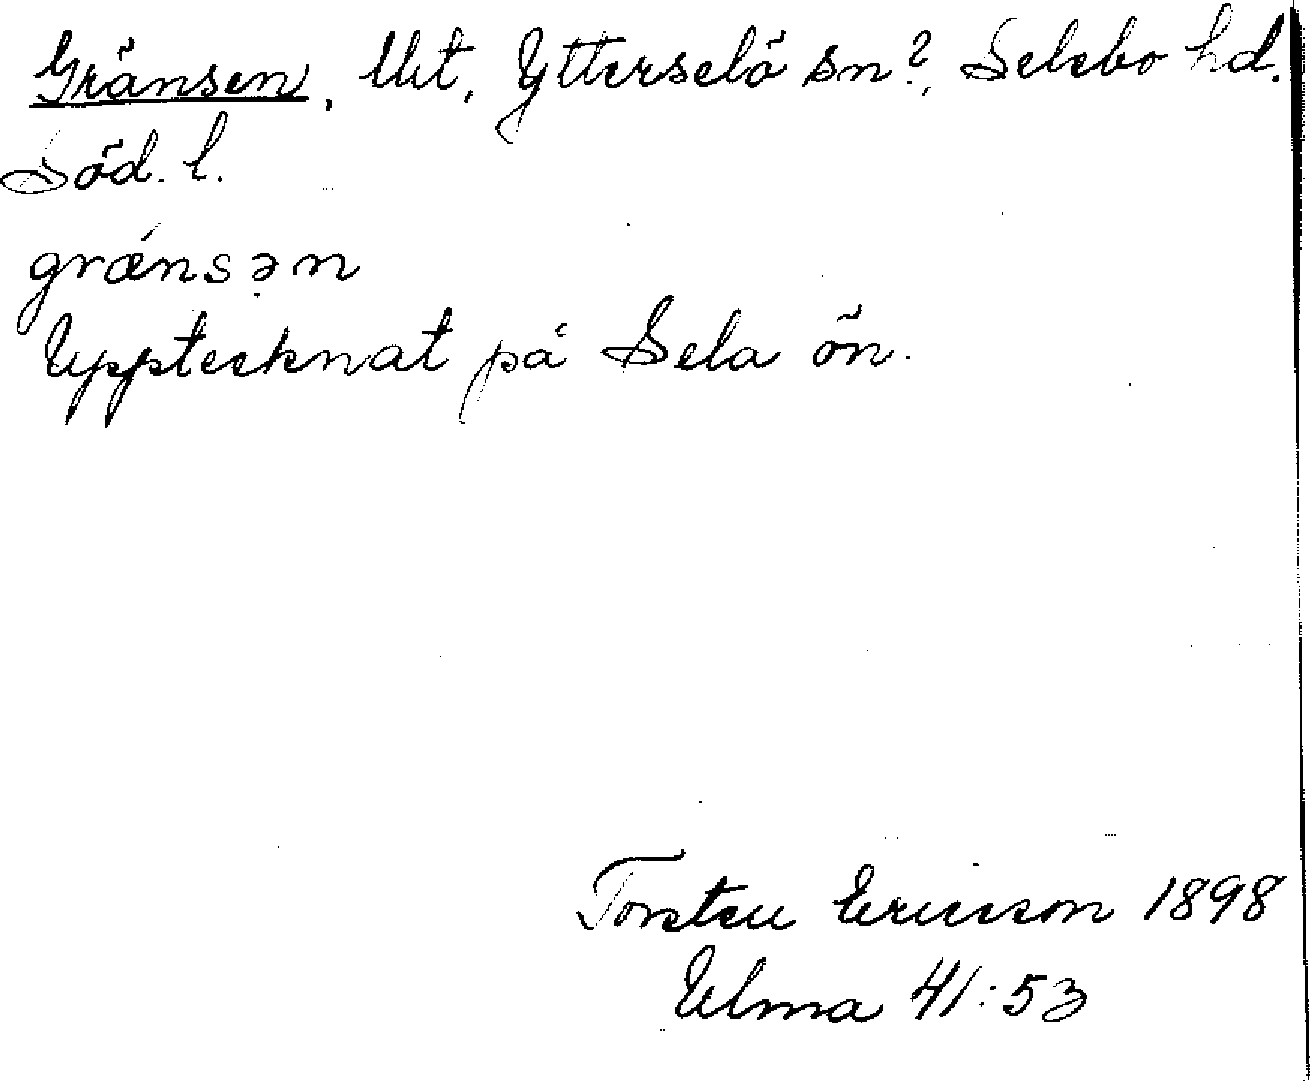 Gränsen, Utt, Ytterselö sn?, Selebo hd.
Söd. l.
grǽnsə̣n
Upptecknat på Sela ön.
Torsten Ericsson 1898
Ulma 41:53